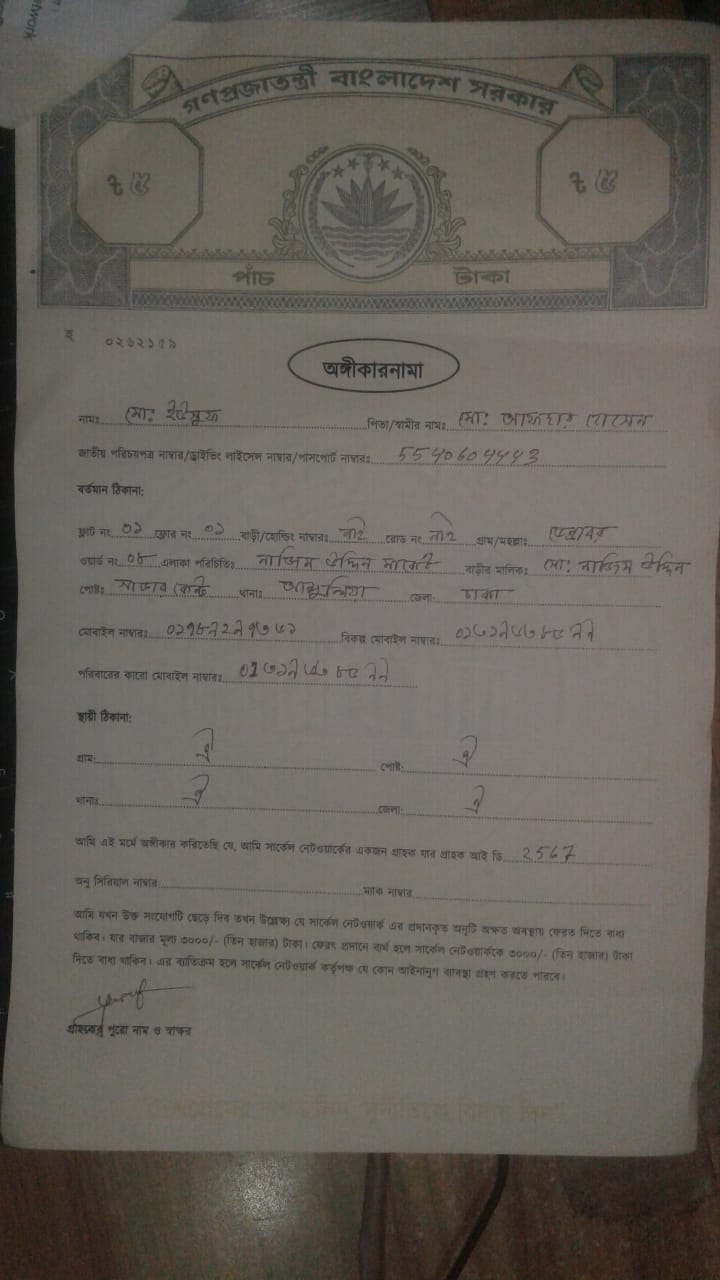 গণপ্রজাতন্ত্রী বাংলাদেশ সরকার
৳ ৫ ৳ ৫
পাঁচ টাকা
অঙ্গীকারনামা
নামঃ মো: ইউসুফ পিতা/স্বামীর নামঃ মো:
জাতীয় পরিচয়পত্র নাম্বার/ড্রাইভিং লাইসেন্স নাম্বার/পাসপোর্ট নাম্বারঃ
বর্তমান ঠিকানা:
ফ্ল্যাট নং ০১ ফ্লোর নং ০১ বাড়ী/হোল্ডিং নাম্বারঃ নাই রোড নং নাই গ্রাম/মহল্লাঃ
ওয়ার্ড নং ০৮ এলাকা পরিচিতিঃ নাজিম উদ্দিন মার্কেট বাড়ীর মালিক: মো: নাজিম উদ্দিন
পোষ্টঃ সাভার ক্যান্ট থানাঃ আশুলিয়া জেলা: ঢাকা
মোবাইল নাম্বারঃ বিকল্প মোবাইল নাম্বারঃ
পরিবারের কারো মোবাইল নাম্বারঃ
স্থায়ী ঠিকানা:
গ্রাম: ঐ পোষ্ট: ঐ
থানাঃ ঐ জেলা: ঐ
আমি এই মর্মে অঙ্গীকার করিতেছি যে, আমি সার্কেল নেটওয়ার্কের একজন গ্রাহক যার গ্রাহক আই ডি 2567
অনু সিরিয়াল নাম্বার ম্যাক নাম্বার
আমি যখন উক্ত সংযোগটি ছেড়ে দিব তখন উল্লেক্ষ্য যে সার্কেল নেটওয়ার্ক এর প্রদানকৃত অনুটি অক্ষত অবস্থায় ফেরত দিতে বাধ্য
থাকিব। যার বাজার মূল্য ৩০০০/- (তিন হাজার) টাকা। ফেরৎ প্রদানে ব্যর্থ হলে সার্কেল নেটওয়ার্ককে ৩০০০/- (তিন হাজার) টাকা
দিতে বাধ্য থাকিব। এর ব্যতিক্রম হলে সার্কেল নেটওয়ার্ক কর্তৃপক্ষ যে কোন আইনানুগ ব্যাবস্থা গ্রহণ করতে পারবে।
গ্রাহকের পুরো নাম ও স্বাক্ষর